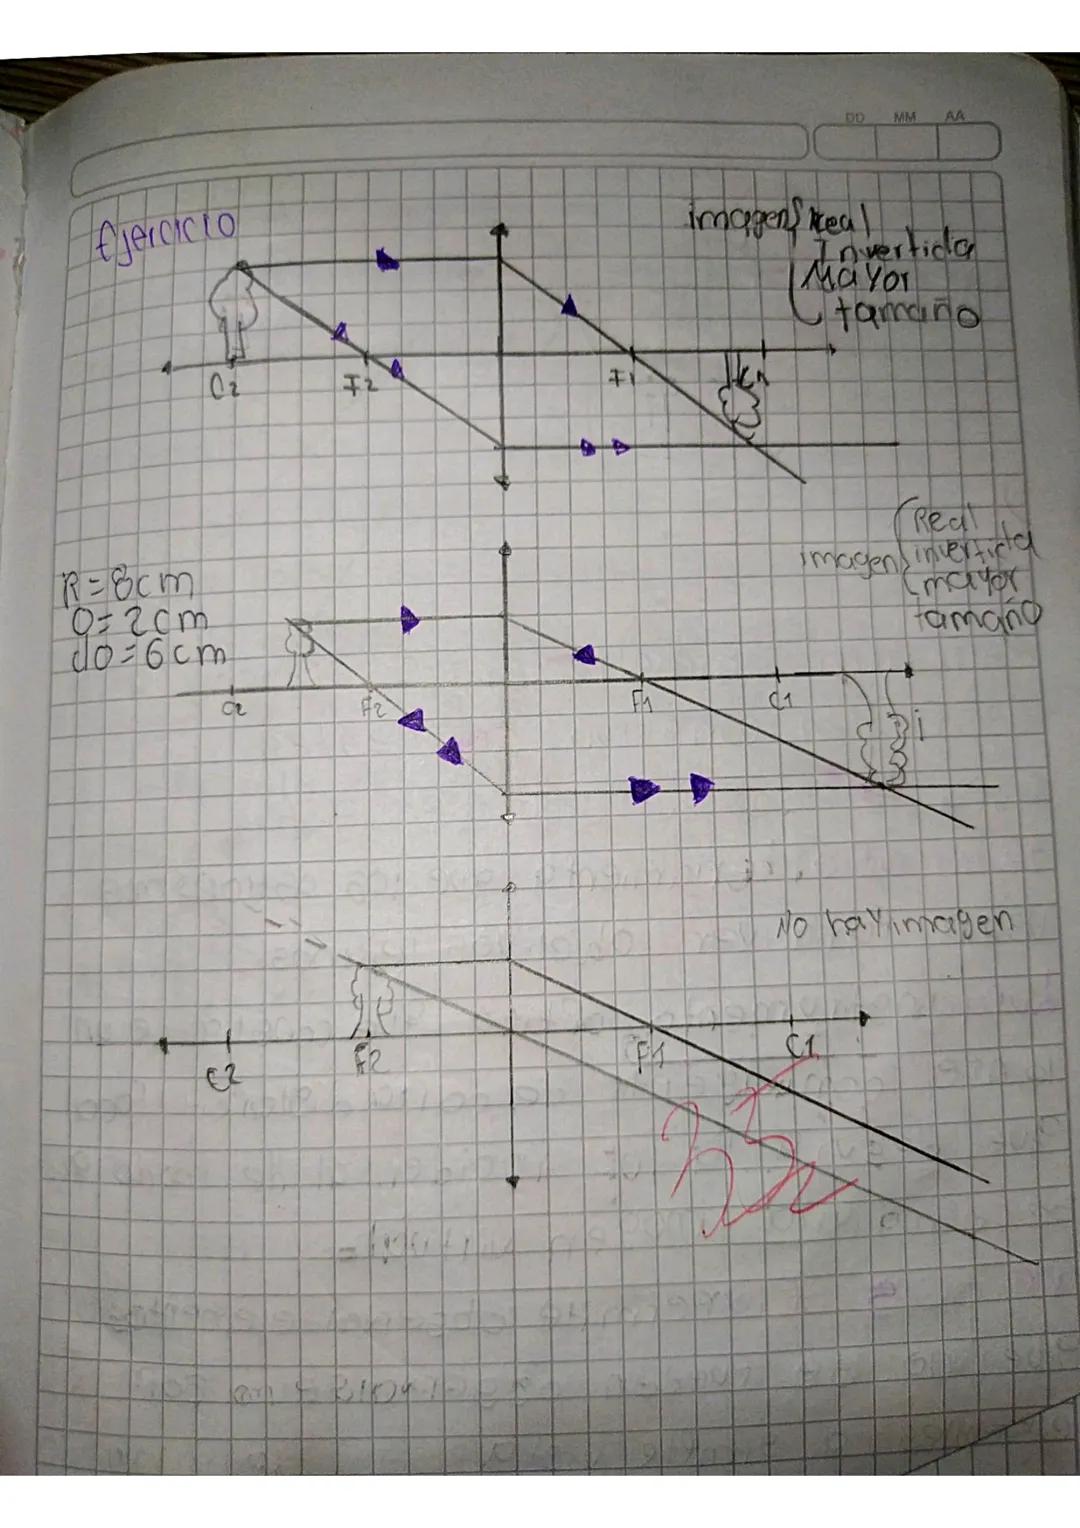 DD MM AA
Ejercicio
imagen { Real
Invertida
Mayor
tamaño
C2 F2 F1 C1
R=8cm
O=2cm
do=6cm
imagen { Real
invertida
mayor
tamaño
C2 F2 F1 C1
i
No hay imagen
C2 F2 F1 C1